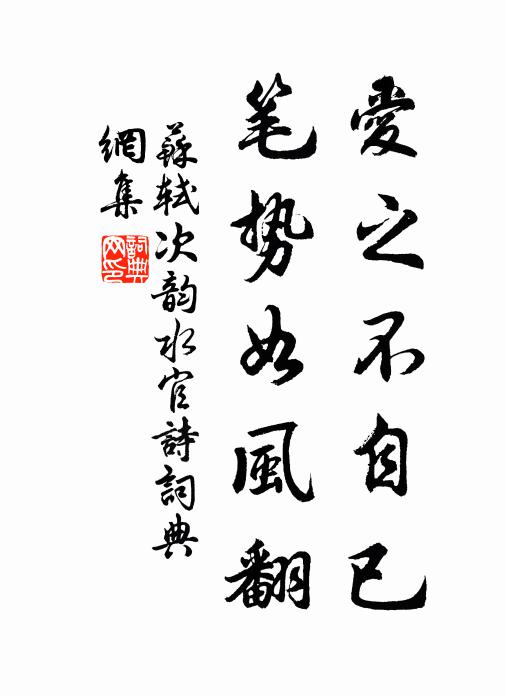 愛之不自已
笔势如風翻
蘇轼次韵水官詩詞典
網集
詞典
网印